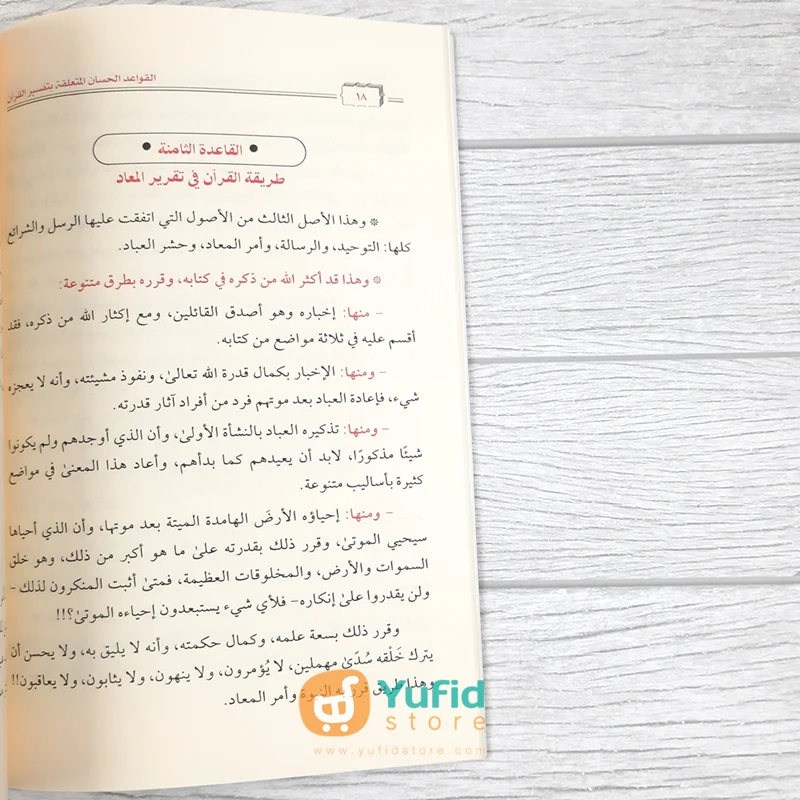 القواعد الحسان المتعلقة بتفسير القرآن
١٨
• القاعدة الثامنة •
طريقة القرآن في تقرير المعاد
* وهذا الأصل الثالث من الأصول التي اتفقت عليها الرسل والشرائع
كلها: التوحيد، والرسالة، وأمر المعاد، وحشر العباد.
* وهذا قد أكثر الله من ذكره في كتابه، وقرره بطرق متنوعة:
- منها: إخباره وهو أصدق القائلين، ومع إكثار الله من ذكره، فقد
أقسم عليه في ثلاثة مواضع من كتابه.
- ومنها: الإخبار بكمال قدرة الله تعالىٰ، ونفوذ مشيئته، وأنه لا يعجزه
شيء، فإعادة العباد بعد موتهم فرد من أفراد آثار قدرته.
- ومنها: تذكيره العباد بالنشأة الأولىٰ، وأن الذي أوجدهم ولم يكونوا
شيئًا مذكورًا، لابد أن يعيدهم كما بدأهم، وأعاد هذا المعنىٰ في مواضع
كثيرة بأساليب متنوعة.
- ومنها: إحياؤه الأرضَ الهامدة الميتة بعد موتها، وأن الذي أحياها
سيحيي الموتىٰ، وقرر ذلك بقدرته علىٰ ما هو أكبر من ذلك، وهو خلق
السموات والأرض، والمخلوقات العظيمة، فمتىٰ أثبت المنكرون لذلك-
ولن يقدروا علىٰ إنكاره- فلأي شيء يستبعدون إحياءه الموتىٰ؟!!
وقرر ذلك بسعة علمه، وكمال حكمته، وأنه لا يليق به، ولا يحسن أن
يترك خَلْقه سُدًىٰ مهملين، لا يُؤمرون، ولا ينهون، ولا يثابون، ولا يعاقبون!!
وهذا طريق قرر به النبوة وأمر المعاد.
Yufid
store
www.yufidstore.com